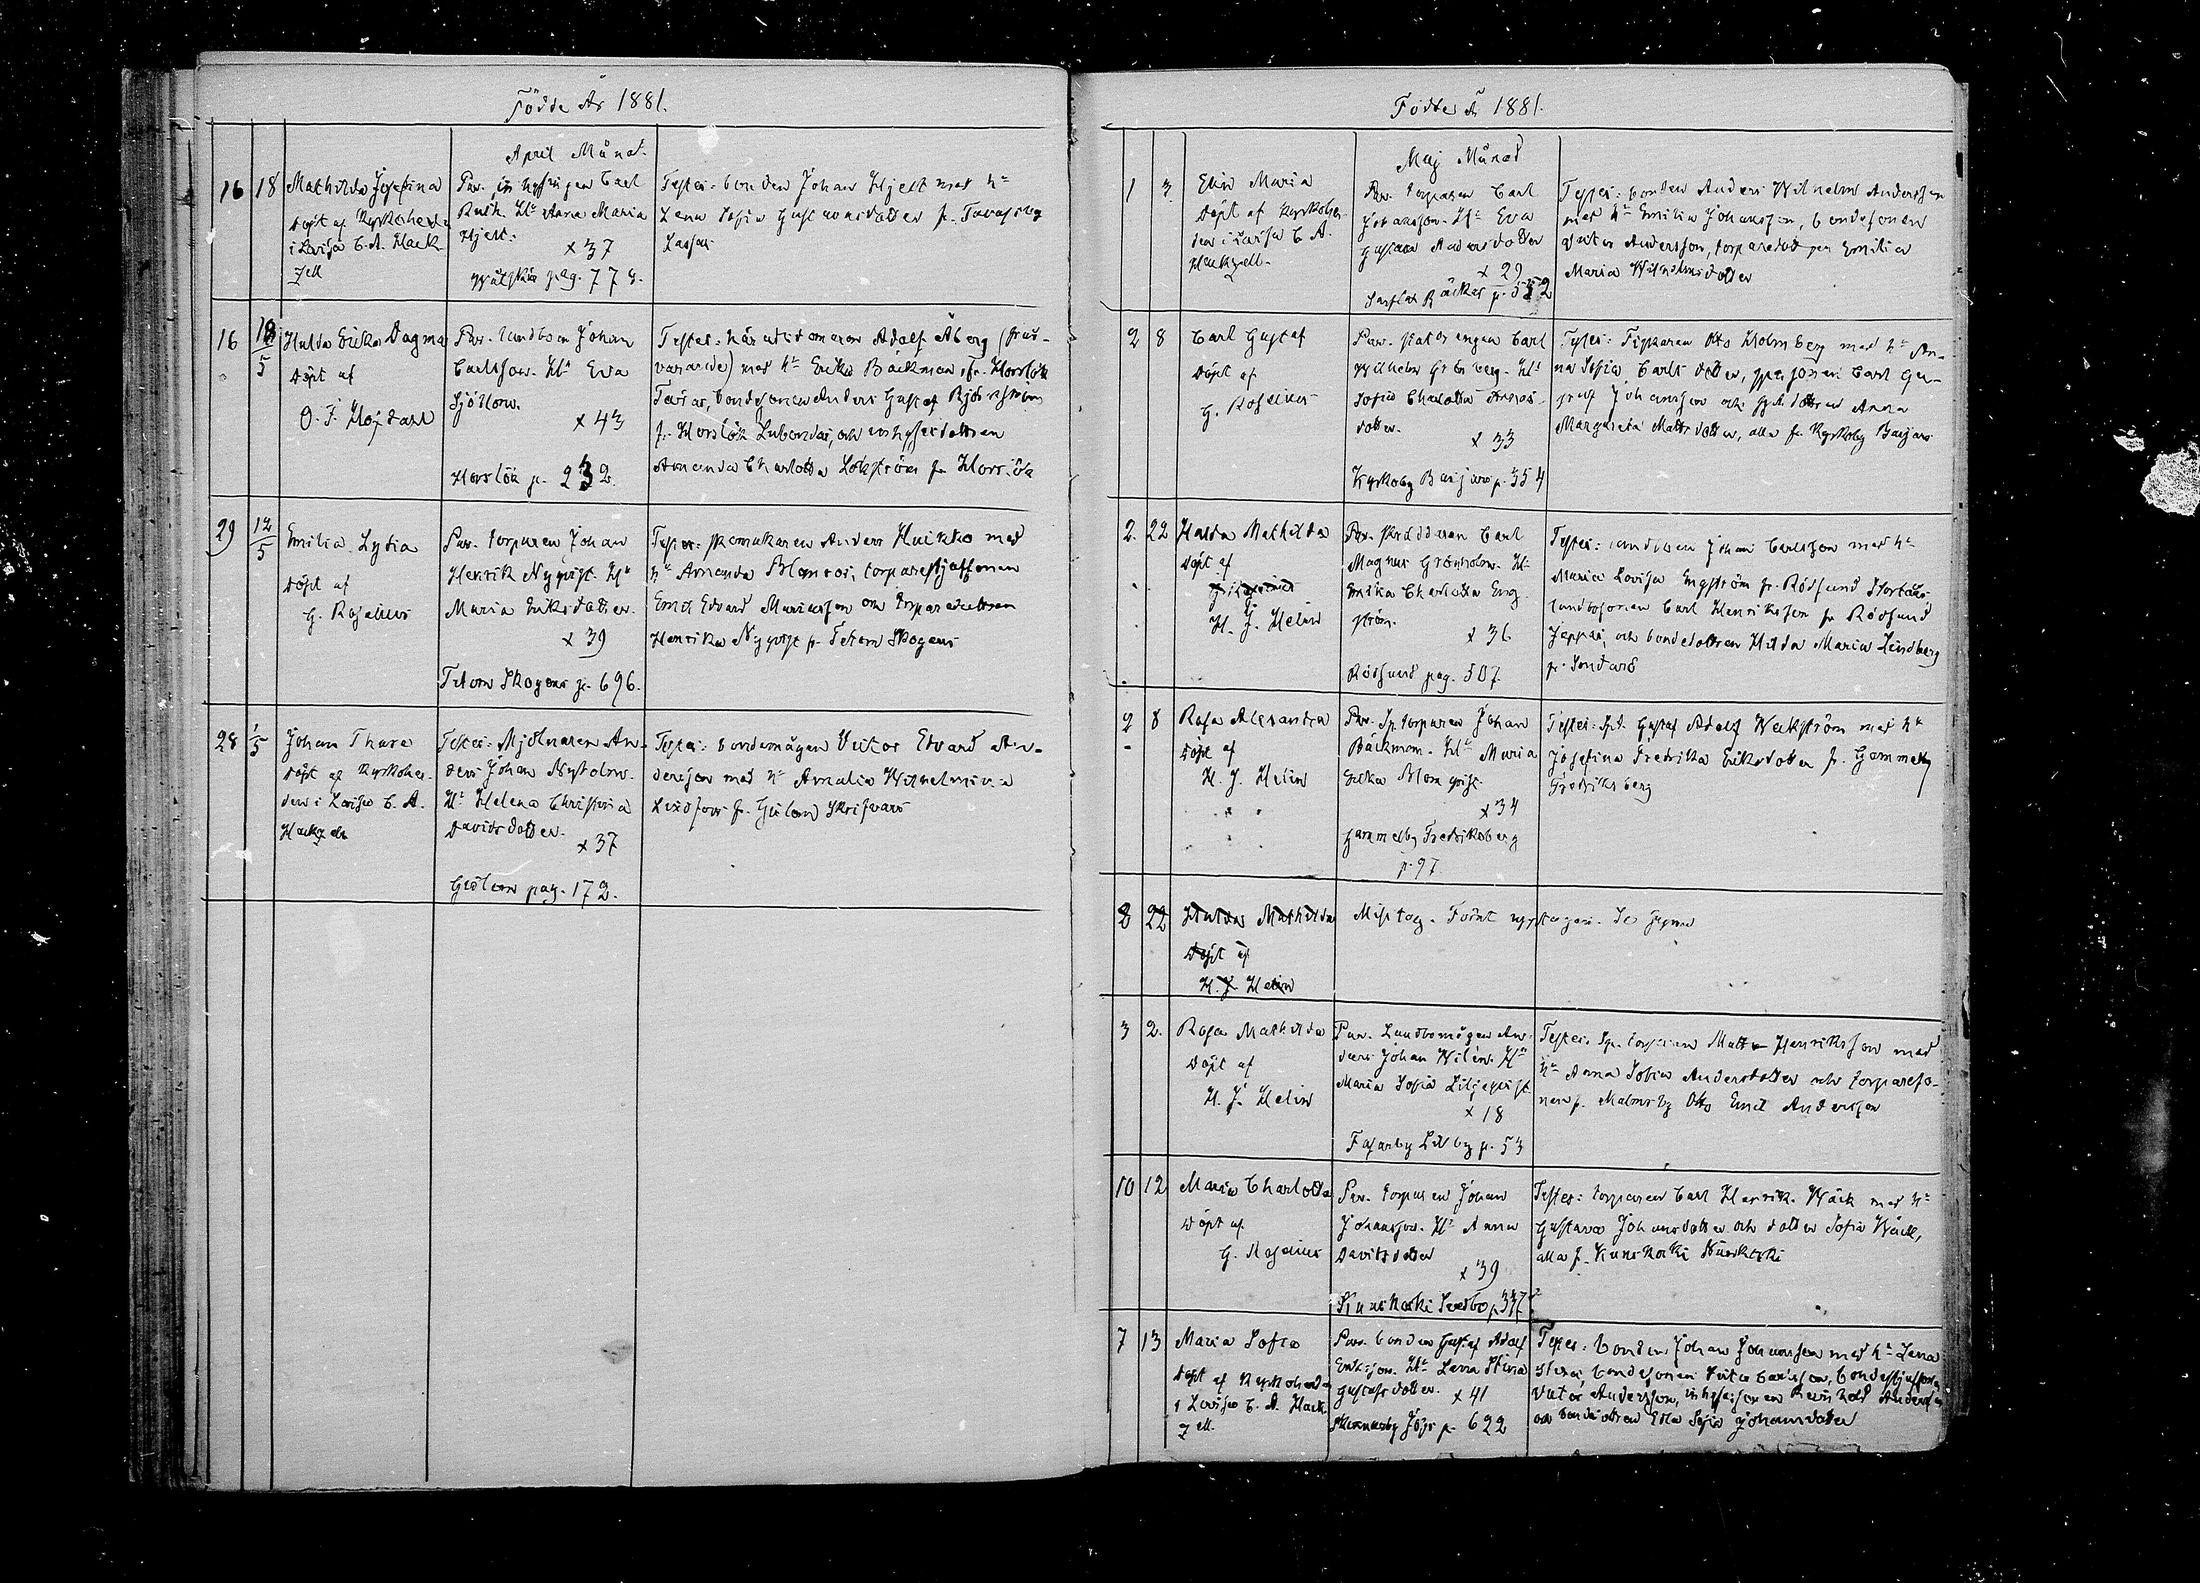 Födde År 1881.
April Månad.
16 18 Mathilda Josefina
Döpt af Kyrkoherden
i Lovisa C. A. Hack
zell
Par. inhysingen Carl
Rask. H. Anna Maria
Hjelt.
× 37
pag. 778.
Testes: bonden Johan Hjelt med h:
Lena Sofia Gustavsdotter fr. Tavastby
Lassas
16 18/5 Hulda Erika Dagmar
Döpt af
O. F. Hojdahl
Par. landbon Johan
Carlsson. H:u Eva
Sjöblom.
× 43
Horslök p. 232.
Testes: häradsdomaren Adolf Åberg (från-
varande) med h: Erika Bäckman, fr. Horslök
bondesonen Anders Gustaf Björkström
fr. Horslök Lubondas, och inhysesdottren
Amanda Charlotta Lökström fr. Horslök
29 12/5 Emilia Lydia
Döpt af
G. Roselius
Par. torparen Johan
Henrik Nyqvist. H:u
Maria Eriksdotter.
× 39
Tetom Skogens p. 696.
Testes: skomakaren Anders Huikko med
h: Amanda Blomros, torparestjuffsonen
Emil Edvard Mariasson och torparedottren
Henrika Nyqvist fr. Tetom Skogens
28 1/5 Johan Thure
Döpt af Kyrkoher-
den i Lovisa C. A.
Hackzell
Testes: Mjölnaren An-
ders Johan Nyholm.
H: Helena Christina
Davidsdotter.
× 37
Gislom pag. 172.
Testes: bondemågen Victor Edvard An-
dersson med h: Amalia Wilhelmina
Lindfors fr. Gislom Skrifvars
Födte År 1881.
Maj Månad
1 3 Elin Maria
Döpt af Kyrkoher-
den i Lovisa C. A.
Hackzell.
Par. torparen Carl
Johansson. H: Eva
Gustava Andersdotter
× 29
Sarflax Bäckas p. 552
Testes: bonden Anders Wilhelm Andersson
med h: Emilia Johansson, bondesonen
Victor Andersson, torparedottren Emilia
Maria Wilhelmsdotter
2 8 Carl Gustaf
Döpt af
G. Roselius
Par. statdrengen Carl
Wilhelm Grönberg. H:
Sofia Charlotta Andersdotter.
× 33
Kyrkoby Barjars p. 354
Testes: Fiskaren Otto Holmberg med h: An-
na Sofia Carlsdotter, sonen Carl Gu-
staf Johansson och dottren Anna
Margareta Mattsdotter, alla fr. Kyrkoby Barjars
2. 22 Hulda Mathilda
Döpt af
H. J. Helin
Par. skräddaren Carl
Magnus Grönholm. H:
Erika Charlotta Eng-
ström.
× 36
Rödsund pag. 507
Testes: landbon Johan Carlsson med h:
Maria Lovisa Engström fr. Rödsund Storbäcks
landbosonen Carl Henriksson fr. Rödsund
Jeppas, och bondedottren Hilda Maria Lindberg
fr. Sondarö
2 8 Rosa Alexandra
Döpt af
H. J. Helin
Par. Sp. torparen Johan
Bäckman. H: Maria
Erika Blomqvist.
× 34
Gammelby Fredriksberg
p. 97.
Testes: Sp.t. Gustaf Adolf Weckström med h:
Josefina Fredrika Eriksdotter fr. Gammelby
Fredriksberg
8 22 Hulda Mathilda
Döpt af
H. J. Helin
Misstag. Förut upptagen. Se
3 2. Rosa Mathilda
Döpt af
H. J. Helin
Par. Landbomågen An-
ders Johan Wilén. H:u
Maria Sofia Liljeqvist
× 18
Fasarby Lillby p. 53
Testes. Sp. torparen Matts Henriksson med
h: Anna Sofia Andersdotter och torpareso-
nen fr. Malmsby Otto Emil Andersson
10 12 Maria Charlotta
Döpt af
G. Roselius
Par. torparen Johan
Johansson. H: Anna
Davidsdotter
× 39
Kuuskoski Svedbo p. 337.
Testes: torparen Carl Henrik Wäck med h:
Gustava Johansdotter och dotter Sofia Wäck,
alla fr. Kuuskoski
7 13 Maria Sofia
Döpt af Kyrkoherden
i Lovisa C. A. Hack
zell.
Par. bonden Gustaf Adolf
Eriksson. H: Lena Stina
Gustafsdotter. × 41
Skinnarby Jöss p. 622
Testes: bonden Johan Johansson med h: Lena
Stina, bondesonen Victor Carlsson, bondestjuffsonen
Victor Andersson, inhysessonen Reinhold Andersson
och bondedottren Edla Sofia Johansdotter